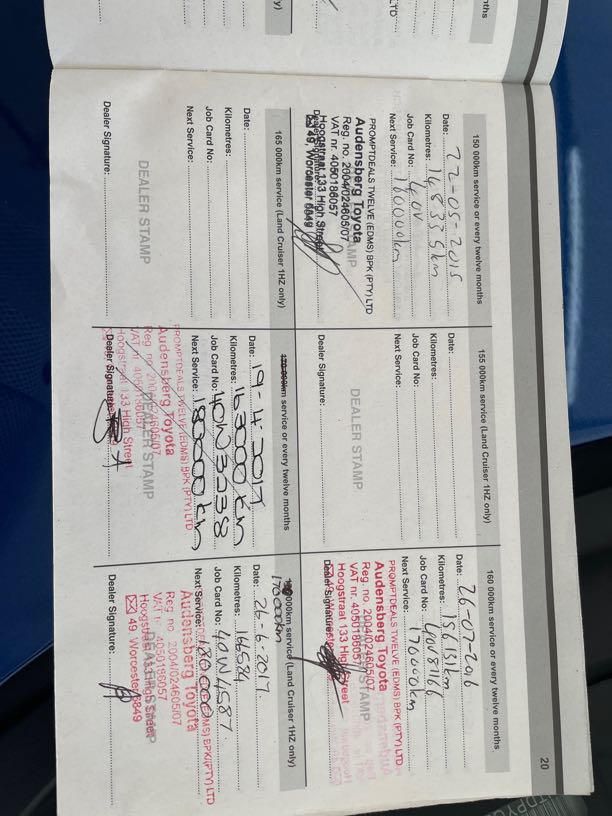 20
150 000km service or every twelve months
Date: 22-05-2015
Kilometres: 148335km
Job Card No: 40V
Next Service: 160000km
PROMPTDEALS TWELVE (EDMS) BPK (PTY) LTD
Audensberg Toyota
Reg. no. 2004/024605/07
VAT nr. 4050186057
Hoogstraat 133 High Street
49, Worcester 6849
155 000km service (Land Cruiser 1HZ only)
Date:
Kilometres:
Job Card No:
Next Service:
DEALER STAMP
Dealer Signature:
160 000km service or every twelve months
Date: 26-07-2016
Kilometres: 156131km
Job Card No:
Next Service: 170000km
PROMPTDEALS TWELVE (EDMS) BPK (PTY) LTD
Audensberg Toyota
Reg. no. 2004/024605/07
VAT nr. 4050186057
Hoogstraat 133 High Street
Dealer Signature:
165 000km service (Land Cruiser 1HZ only)
Date:
Kilometres:
Job Card No:
Next Service:
DEALER STAMP
Dealer Signature:
170 000km service or every twelve months
Date: 19-4-2017
Kilometres: 163000 km
Job Card No: 40W3238
Next Service: 180000 km
PROMPTDEALS TWELVE (EDMS) BPK (PTY) LTD
Audensberg Toyota
Reg. no. 2004/024605/07
VAT nr. 4050186057
Hoogstraat 133 High Street
DEALER STAMP
Dealer Signature:
000km service (Land Cruiser 1HZ only)
170000km
Date: 26-6-2017
Kilometres: 166584
Job Card No: 40W4587
Next Service: 180000
(EDMS) BPK (PTY) LTD
Audensberg Toyota
Reg. no. 2004/024605/07
VAT nr. 4050186057
Hoogstraat 133 High Street
49 Worcester 6849
Dealer Signature: